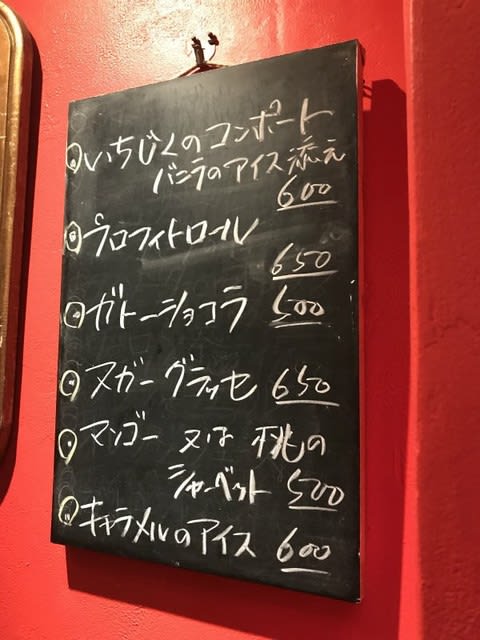 いちじくのコンポート
バニラのアイス添え
600
プロフィトロール
650
ガトーショコラ 500
ヌガーグラッセ 650
マンゴー 又は 桃の
シャーベット 500
キャラメルのアイス 600